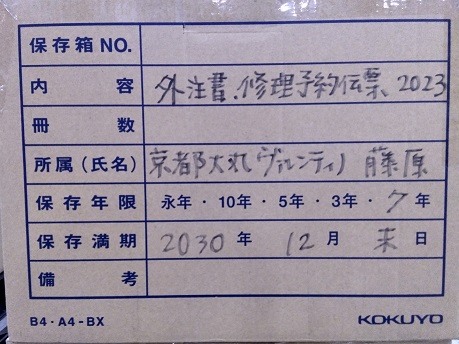 保存箱 NO.
内容 外注書、修理予約伝票 2023
冊数
所属(氏名) 京都大丸(ヴァルンティ) 藤原
保存年限 永年・10年・5年・3年・7年
保存満期 2030年 12月 末日
備考
B4・A4-BX KOKUYO